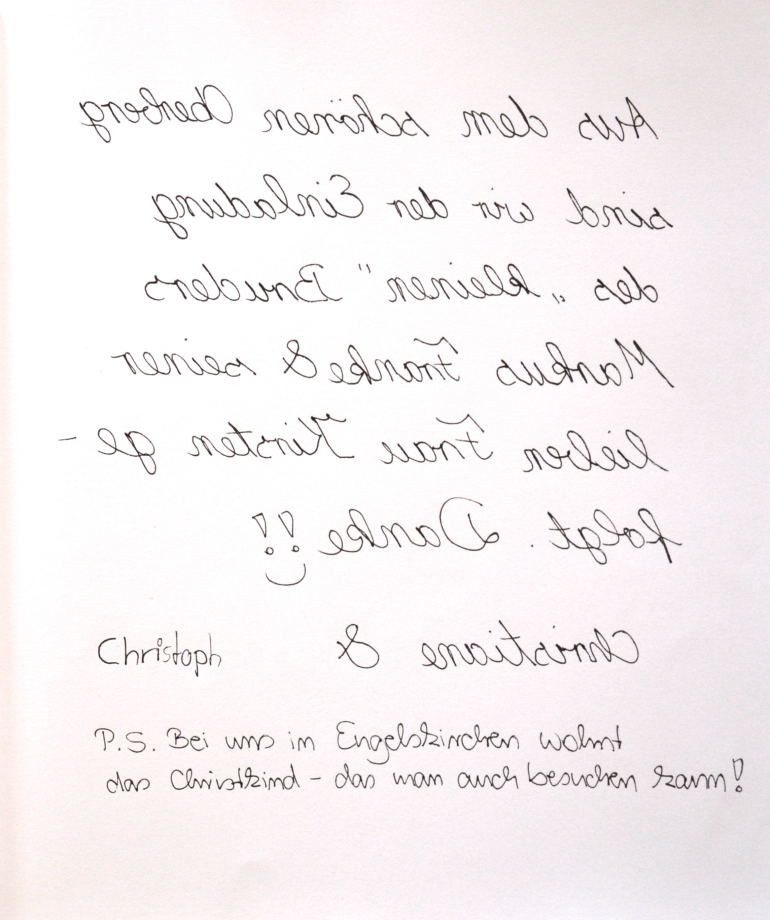 Aus dem schönen Oberberg
sind wir der Einladung
des „kleinen" Bruders
Markus Franke & seiner
lieben Frau Kirsten ge-
folgt. Danke !!
Christiane & Christoph
P.S. Bei uns in Engelskirchen wohnt
das Christkind - das man auch besuchen kann!